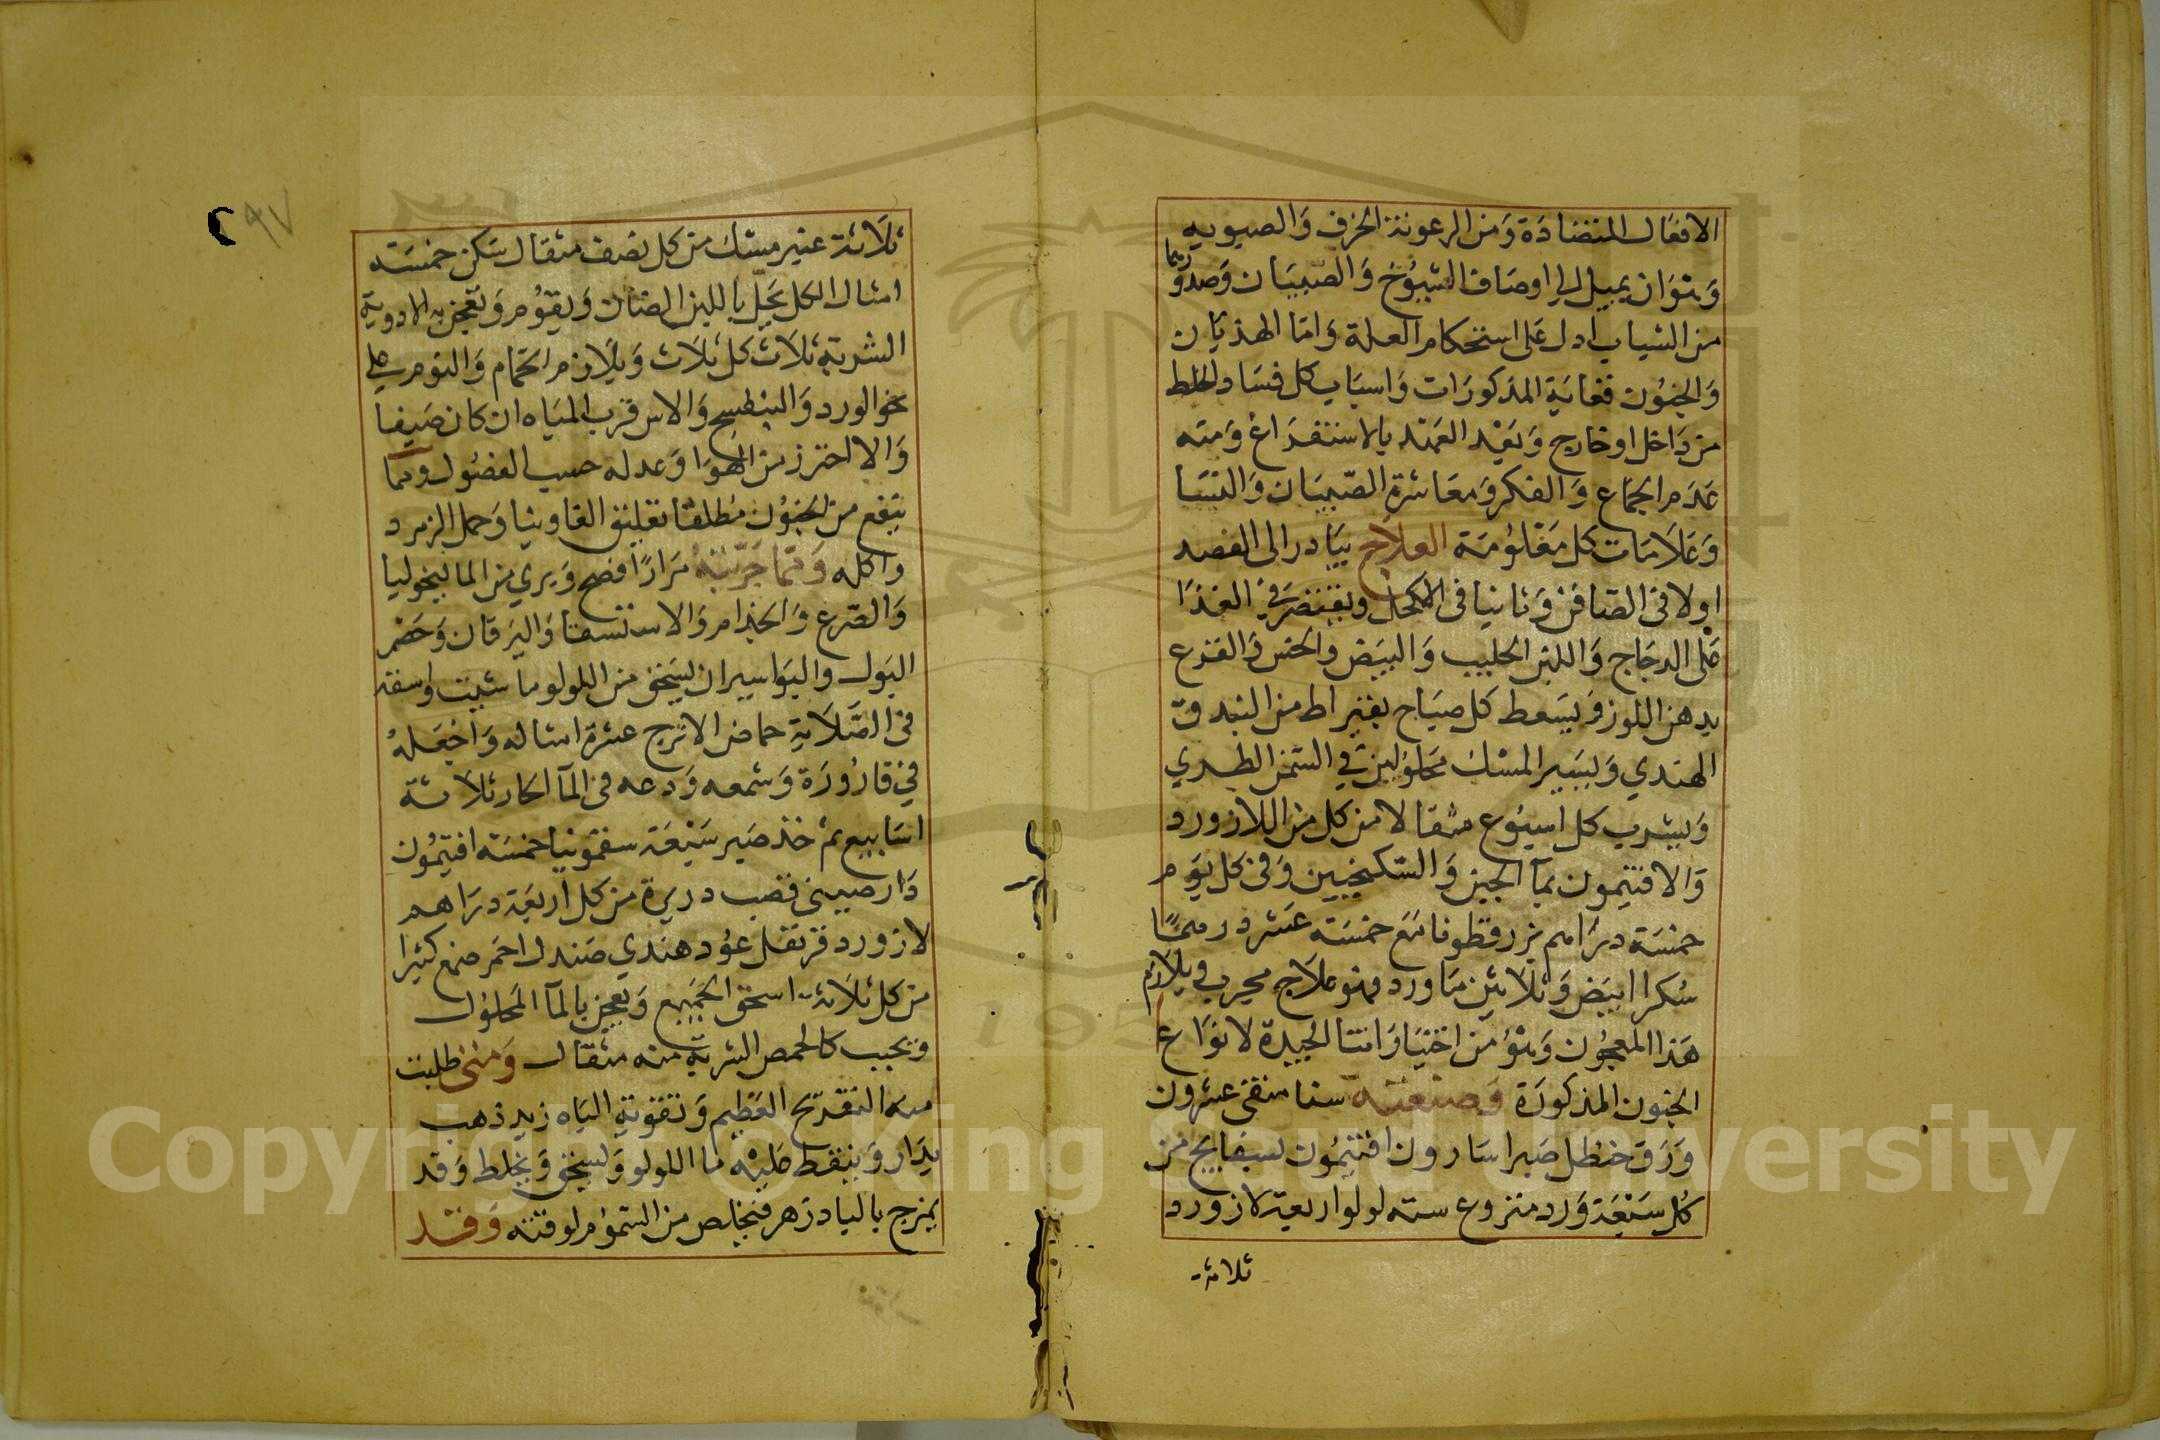 الافعال المتضادة ومن الرعونة الخرف والصبوبيه
وهو ان يميل الى اوصاف الشيوخ والصبيان وصدورهما
من الشباب ادل على استحكام العلة واما الهذيان
والجنون فغاية المذكورات واسباب كل فساد الخلط
من داخل او خارج وبعيد العهد بالاستفراغ ومنه
عدم الجماع والفكر ومعاشرة الصبيان والنسا
وعلامات كل معلومة العلاج يبادر الى الفصد
اولا فى الصافن وثانيا فى الاكحل ويقتصر في الغذا
على الدجاج واللبن الحليب والبيض والخس والقرع
بدهن اللوز ويسعط كل صباح بقيراط من البندق
الهندي ويسير المسك محلولين في السمن الطري
ويشرب كل اسبوع مثقالا من كل من اللازورد
والافتيمون بمآ الجبن والسكنجبين وفى كل يوم
خمسة دراهم بزرقطونا مع خمسة عشر درهما
سكرا ابيض وثلاثين ماورد فهو علاج مجرب ويلازم
هذا المعجون وهو من اختياراتنا الجيدة لانواع
الجنون المذكورة وصنعته سنا منقى عشرون
ورق حنظل صبر اسارون افتيمون بسفايج من
كل سبعة ورد منزوع سته لولو اربعة لازورد
ثلاثة
٩٧
ثلاثة عنبر مسك من كل نصف مثقال سكر خمسة
امثال الكل يحل باللبن الضان ويقوم وتعجن به الادوية
الشربة ثلاث كل ثلاث ويلازم الحمام والنوم على
نحو الورد والبنفسج والاس قرب المياه ان كان صيفا
والا احترز من الهوا وعدله حسب الفصول ومما
ينفع من الجنون مطلقا تعليق الفاوينا وحمل الزمرد
واكله ومما جربته مرارا فصح وبري من الماليخوليا
والصرع والجذام والاستسقا واليرقان وحصر
البول والبواسير ان يسحق من اللولو ما شيت واسقه
فى الصلاية حماض الاترج عشرة امثاله واجعله
في قارورة وشمعه ودعه فى المآ الحار ثلاثة
اسابيع ثم خذ صبر سبعة سقمونيا خمسة افتيمون
دارصينى قصب دريرة من كل اربعة دراهم
لازورد قرنفل عود هندي صندل احمر صمغ كثيرا
من كل ثلاثة اسحق الجميع وتعجن بالمآ المحلول
ويحبب كالحمص الشربة منه مثقال ومتى طلبت
منه التفريح العظيم وتقوية الباه زيد ذهب
يدار وينقط عليه ما اللولو ويسحق ويخلط وقد
يمزج بالبادزهر فيخلص من السموم لوقته وقد